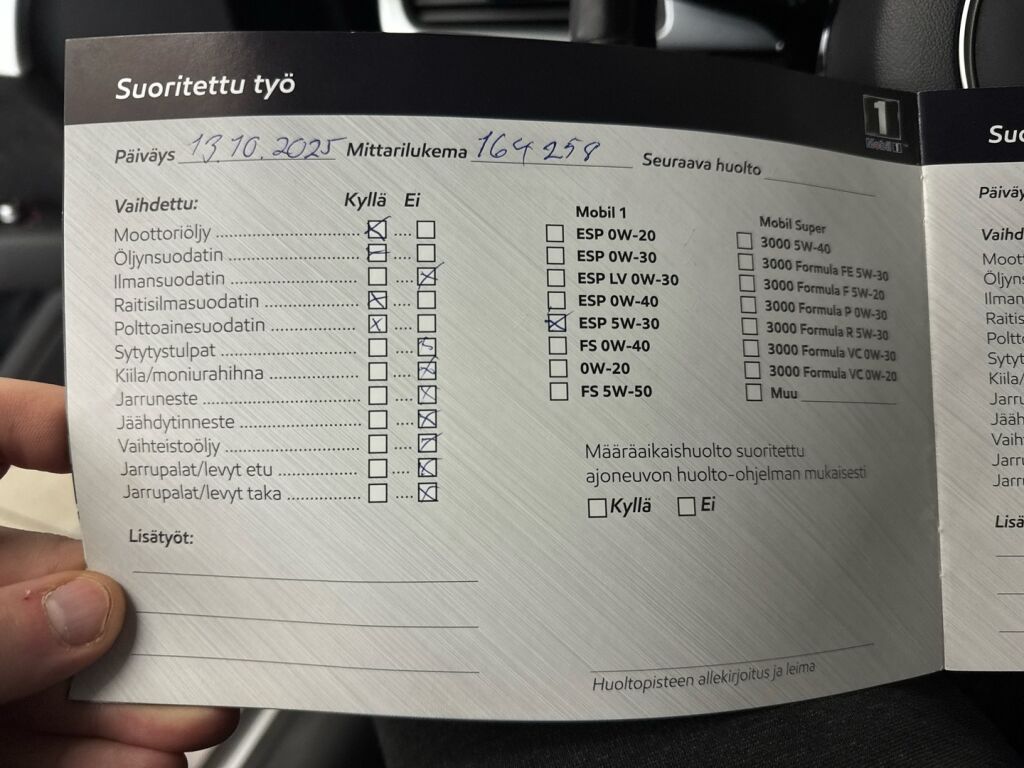 Suoritettu työ
1
Mobil 1
Päiväys 13.10.2025 Mittarilukema 164 258 Seuraava huolto
Vaihdettu: Kyllä Ei
Moottoriöljy
Öljynsuodatin
Ilmansuodatin
Raitisilmasuodatin
Polttoainesuodatin
Sytytystulpat
Kiila/moniurahihna
Jarruneste
Jäähdytinneste
Vaihteistoöljy
Jarrupalat/levyt etu
Jarrupalat/levyt taka
Lisätyöt:
Mobil 1
ESP 0W-20
ESP 0W-30
ESP LV 0W-30
ESP 0W-40
ESP 5W-30
FS 0W-40
0W-20
FS 5W-50
Mobil Super
3000 5W-40
3000 Formula FE 5W-30
3000 Formula F 5W-20
3000 Formula P 0W-30
3000 Formula R 5W-30
3000 Formula VC 0W-30
3000 Formula VC 0W-20
Muu
Määräaikaishuolto suoritettu
ajoneuvon huolto-ohjelman mukaisesti
Kyllä Ei
Huoltopisteen allekirjoitus ja leima